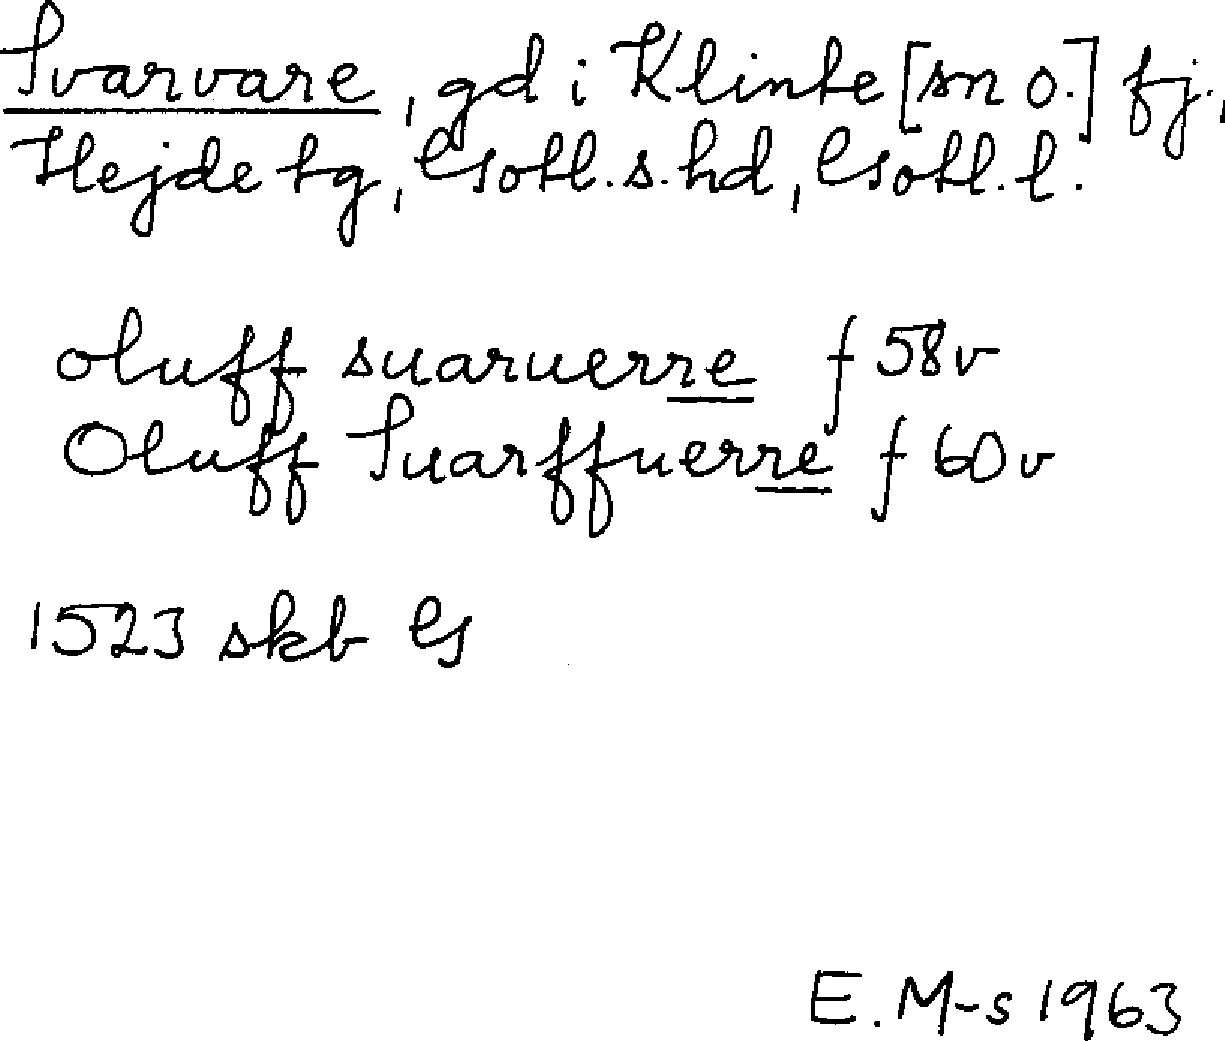 Svarvare, gd i Klinte [sn o.] fj.,
Hejde tg, Gotl. s. hd, Gotl. l.
oluff suaruerre f 58v
Oluff Suarffuerre f 60v
1523 skb G
E. M-s 1963